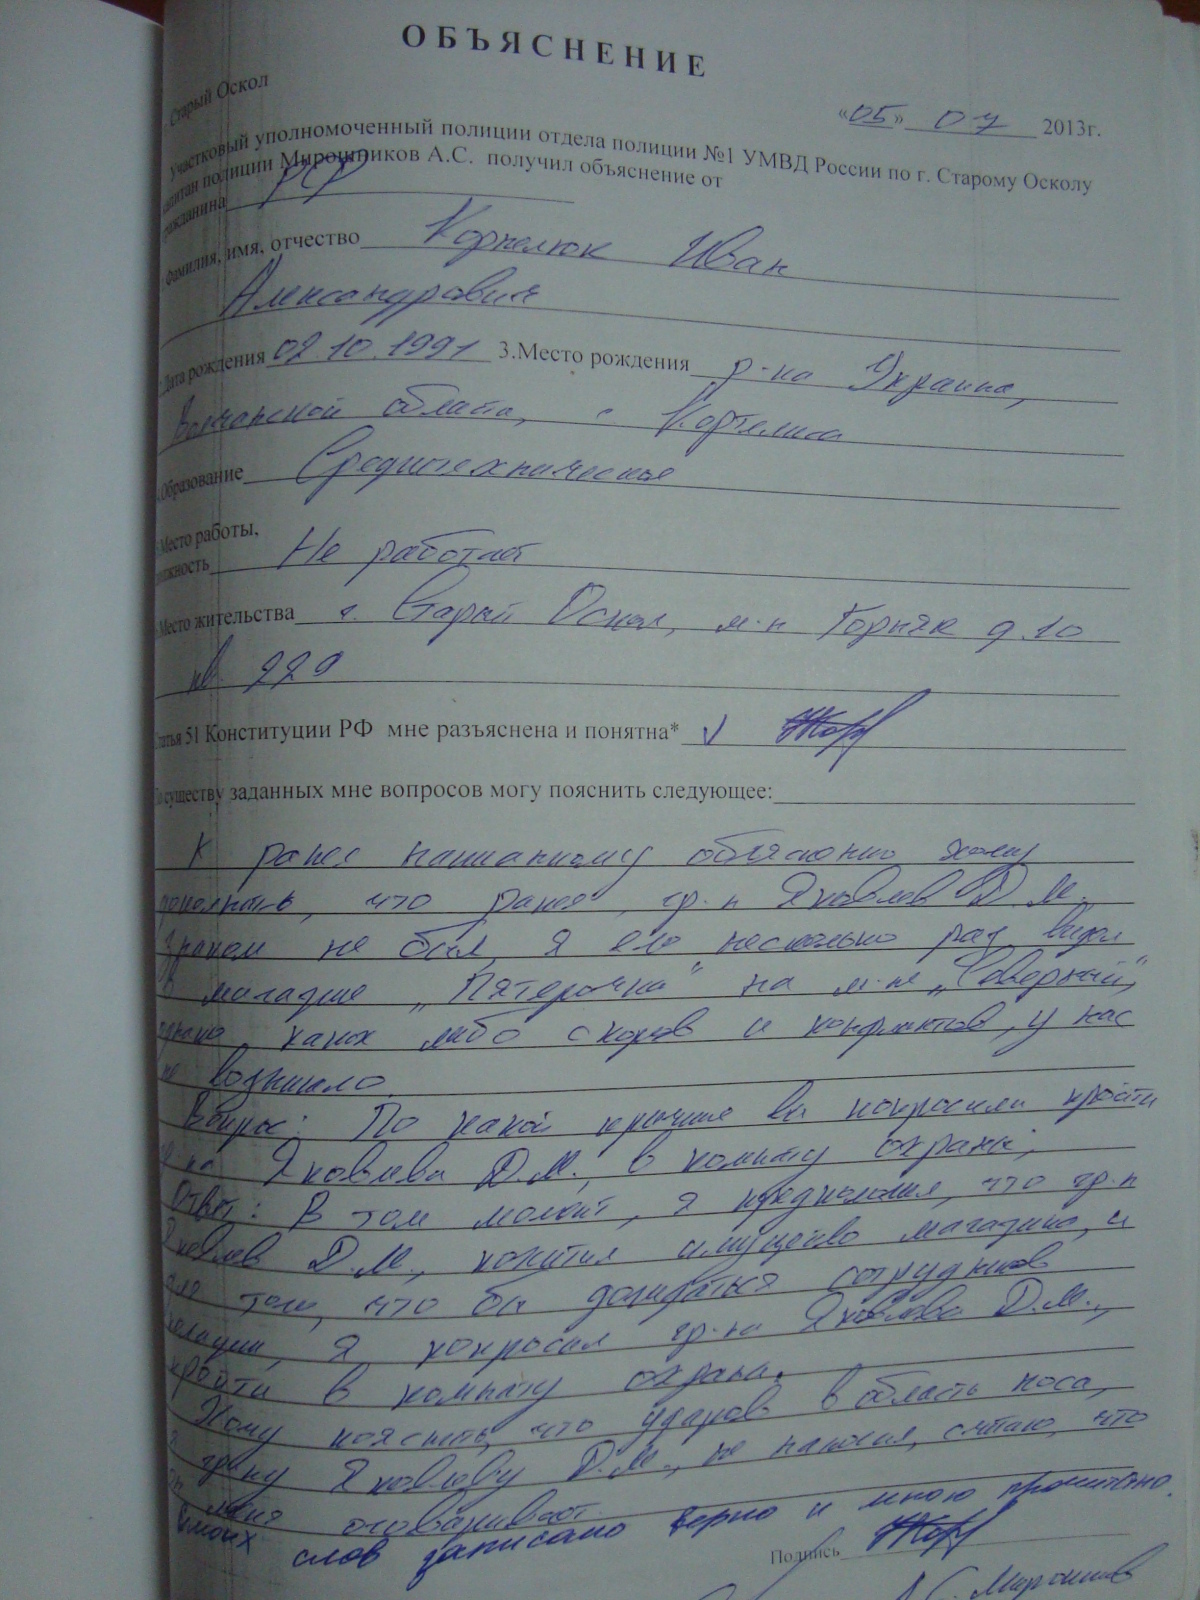 ОБЪЯСНЕНИЕ
Старый Оскол
«05» 07 2013г.
Участковый уполномоченный полиции отдела полиции №1 УМВД России по г. Старому Осколу
капитан полиции Мирошников А.С. получил объяснение от
гражданина РФ
Фамилия, имя, отчество Корнелюк Иван
Александрович
Дата рождения 02.10.1991 3.Место рождения р-ка Украина,
области, с
Образование Среднетехническое
Место работы,
должность Не работает
Место жительства г. Старый Оскол, м-н Горняк д.10
кв 229
Статья 51 Конституции РФ мне разъяснена и понятна* v
По существу заданных мне вопросов могу пояснить следующее:
К ранее написанному объяснению хочу
дополнить, что ранее, гр-н Яковлев Д.М.
знаком не был, я его несколько раз видел
в магазине „Пятерочка" на м-не „Северный",
однако каких либо споров и конфликтов, у нас
не возникало.
Вопрос: По какой причине вы попросили пройти
гр-на Яковлева Д.М., в комнату охраны;
Ответ: В тот момент, я предположил, что гр-н
Яковлев Д.М., похитил имущество магазина, и
для того, что бы дождаться сотрудников
полиции, я попросил гр-на Яковлева Д.М.,
пройти в комнату охраны.
Хочу пояснить, что ударов в область носа,
я гр-ну Яковлеву Д.М., не наносил, считаю, что
он меня оговаривает.
С моих слов записано верно и мною прочитано.
Подпись
А.С. Мирошников